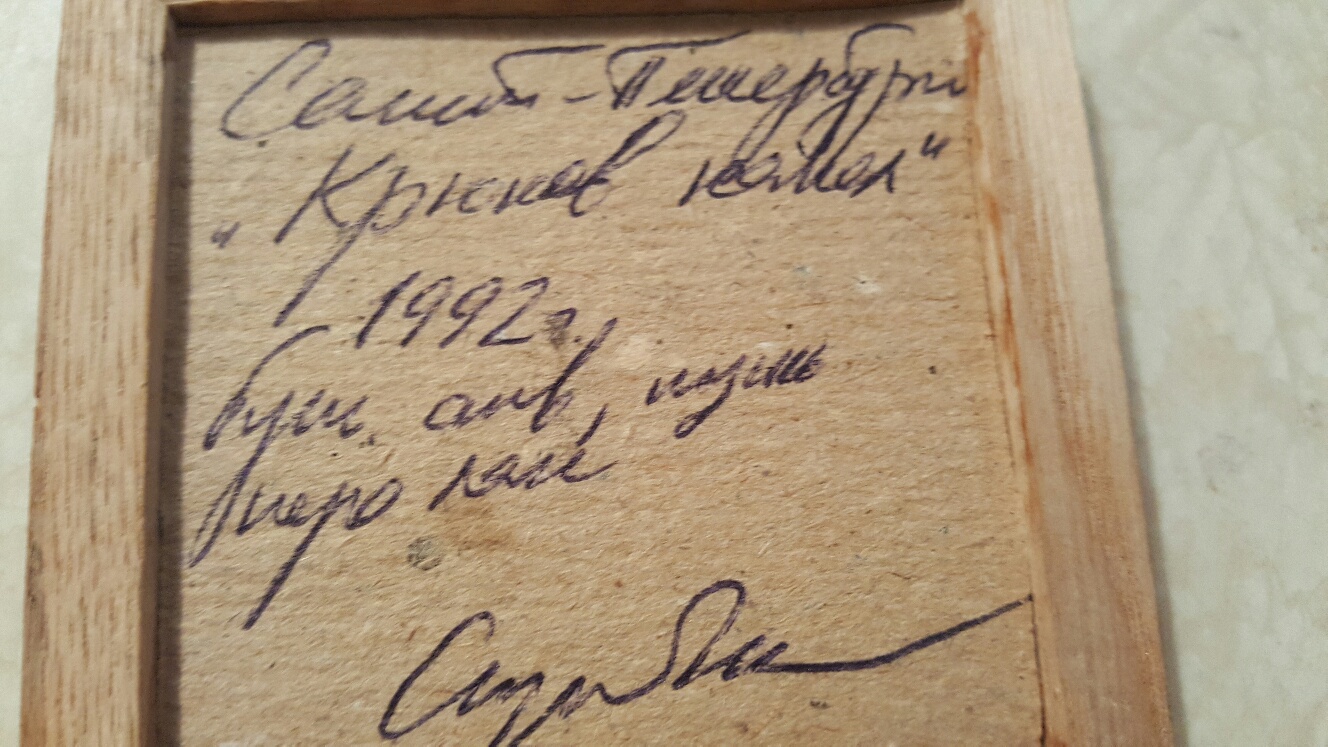 Санкт-Петербург
„Крюков канал"
1992 г.
бум. акв, тушь
перо лак